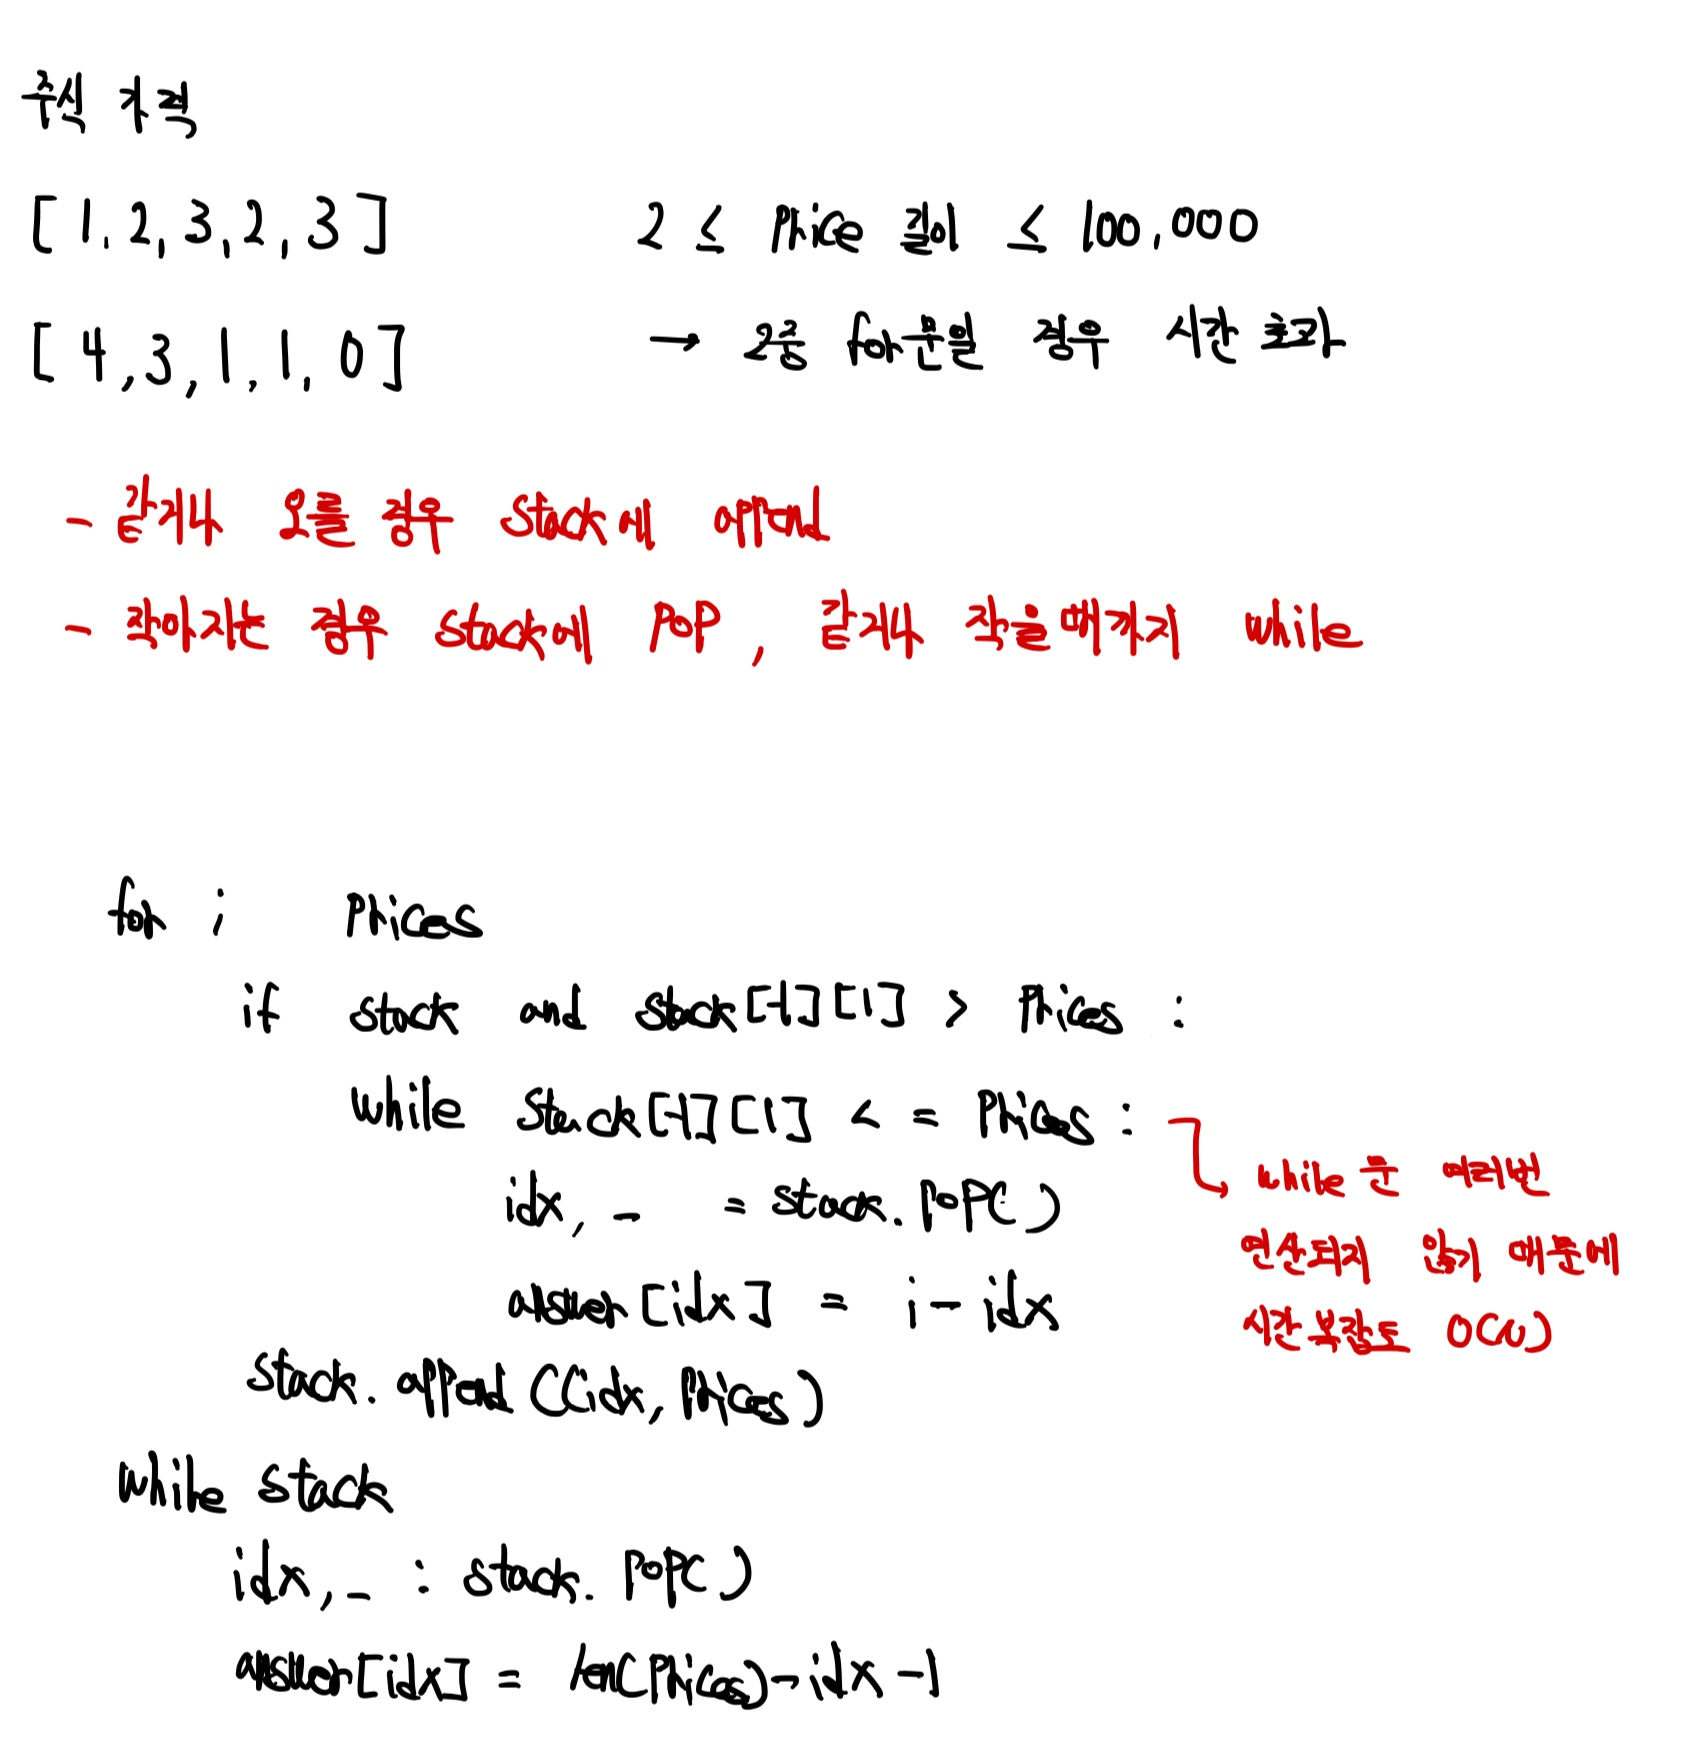 주식 가격
[ 1, 2, 3, 2, 3 ]
2 ≤ Price 길이 ≤ 100,000
[ 4, 3, 1, 1, 0 ]
→ 2중 for문일 경우 시간 초과
- 같거나 오를 경우 stack에 append
- 작아지는 경우 stack에 pop, 같거나 작을때까지 while
for i Prices
if stack and stack[-1][1] > Prices :
while stack[-1][1] <= Prices :
idx, _ = stack.pop()
answer[idx] = i - idx
while문 여러번
연산되지 않기 때문에
시간복잡도 O(N)
stack.append((idx, Prices)
while stack
idx, _ : stack.pop()
answer[idx] = len(Prices)-idx-1